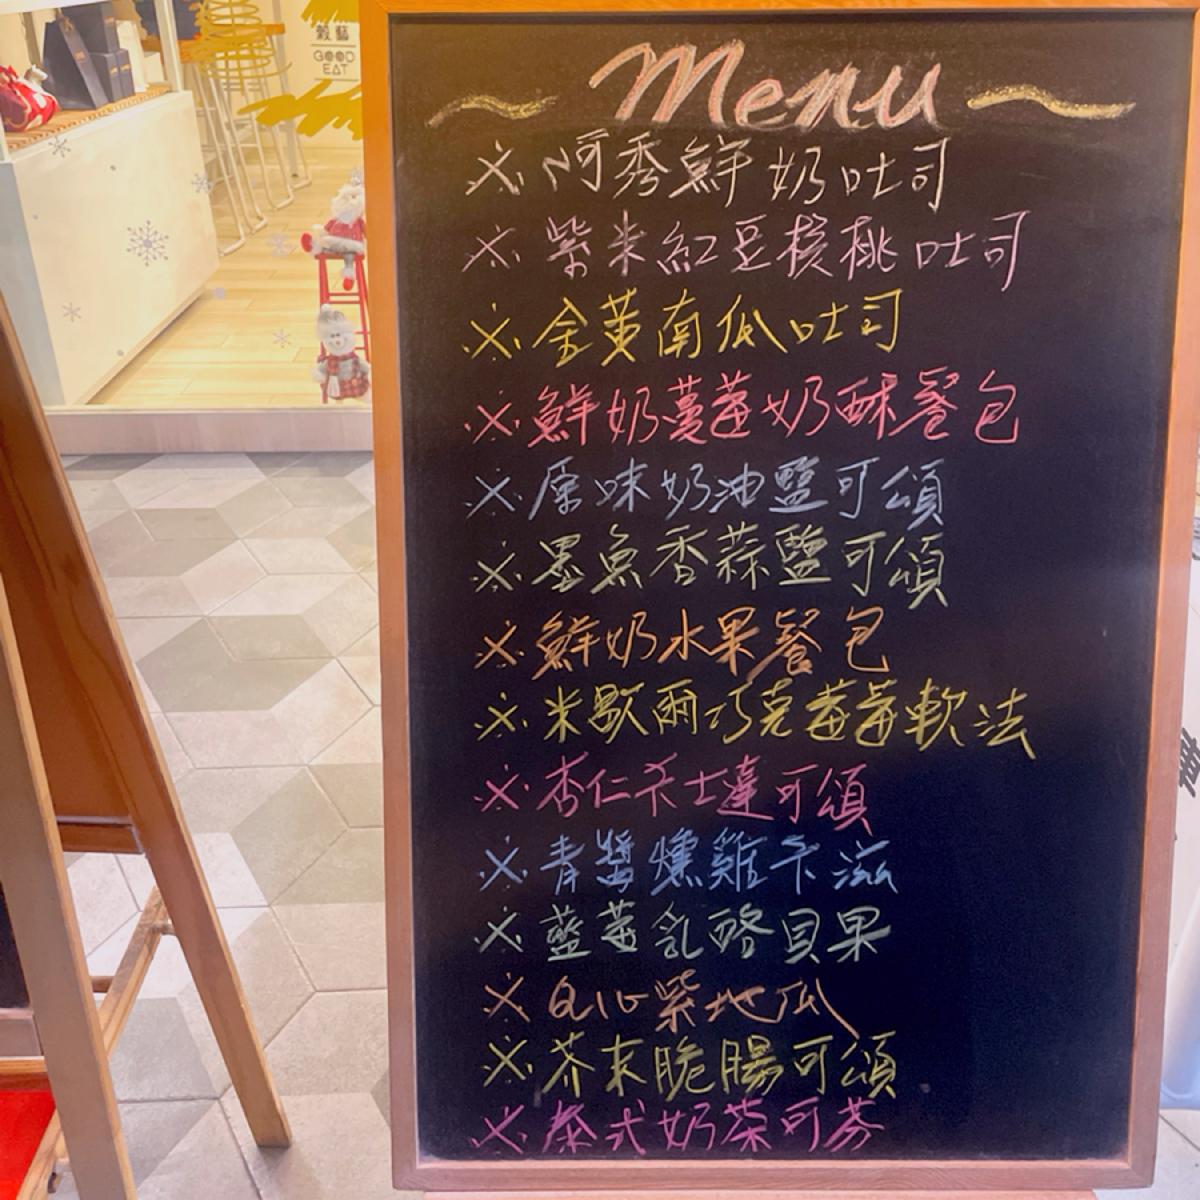 穀藝
GOOD
EAT
Menu
※阿秀鮮奶吐司
※紫米紅豆核桃吐司
※金黃南瓜吐司
※鮮奶蔓莓奶酥餐包
※原味奶油鹽可頌
※墨魚香蒜鹽可頌
※鮮奶水果餐包
※米歇爾巧克莓莓軟法
※杏仁卡士達可頌
※青醬燻雞卡滋
※藍莓乳酪貝果
※QQ紫地瓜
※芥末脆腸可頌
※泰式奶茶可芬